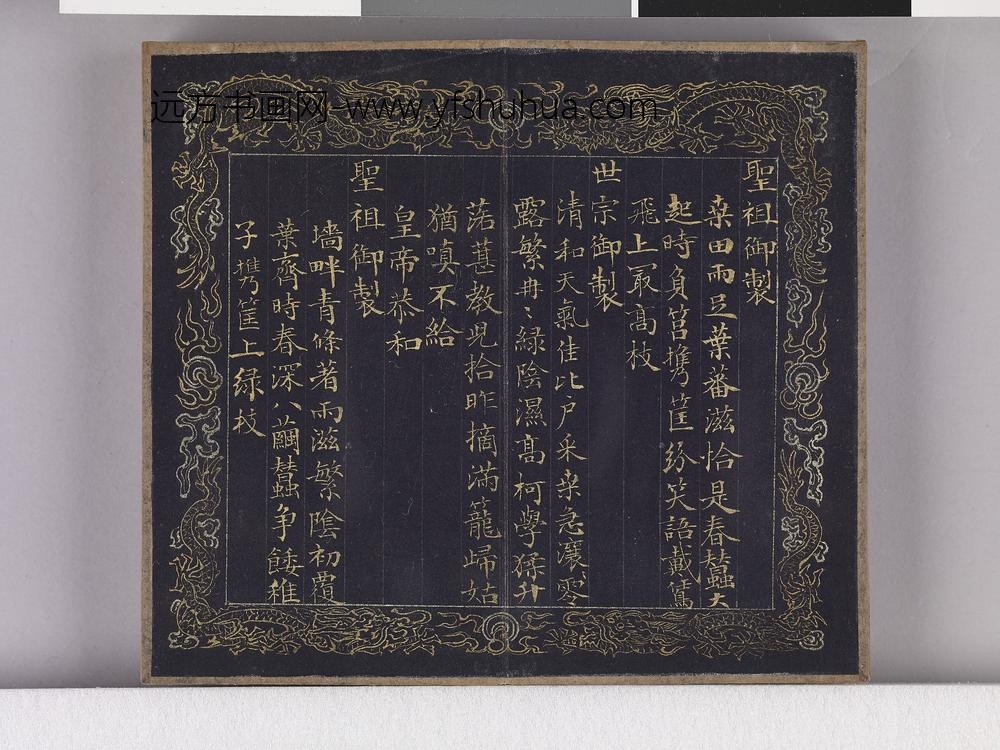 远方书画网-www.yfshuhua.com
聖祖御製
桒田雨足葉蕃滋恰是春蠶大
起時負筥攜筐紛笑語戴鵀
飛上最髙枝
世宗御製
清和天氣佳比户采桒急瀼零
露繁冉〻緑陰濕髙柯學猱升
落葚教兒拾昨摘滿籠歸姑
猶嗔不給
皇帝恭和
聖祖御製
墻畔青條著雨滋繁陰初覆
葉齊時春深八繭蠶争餧稚
子攜筐上緑枝